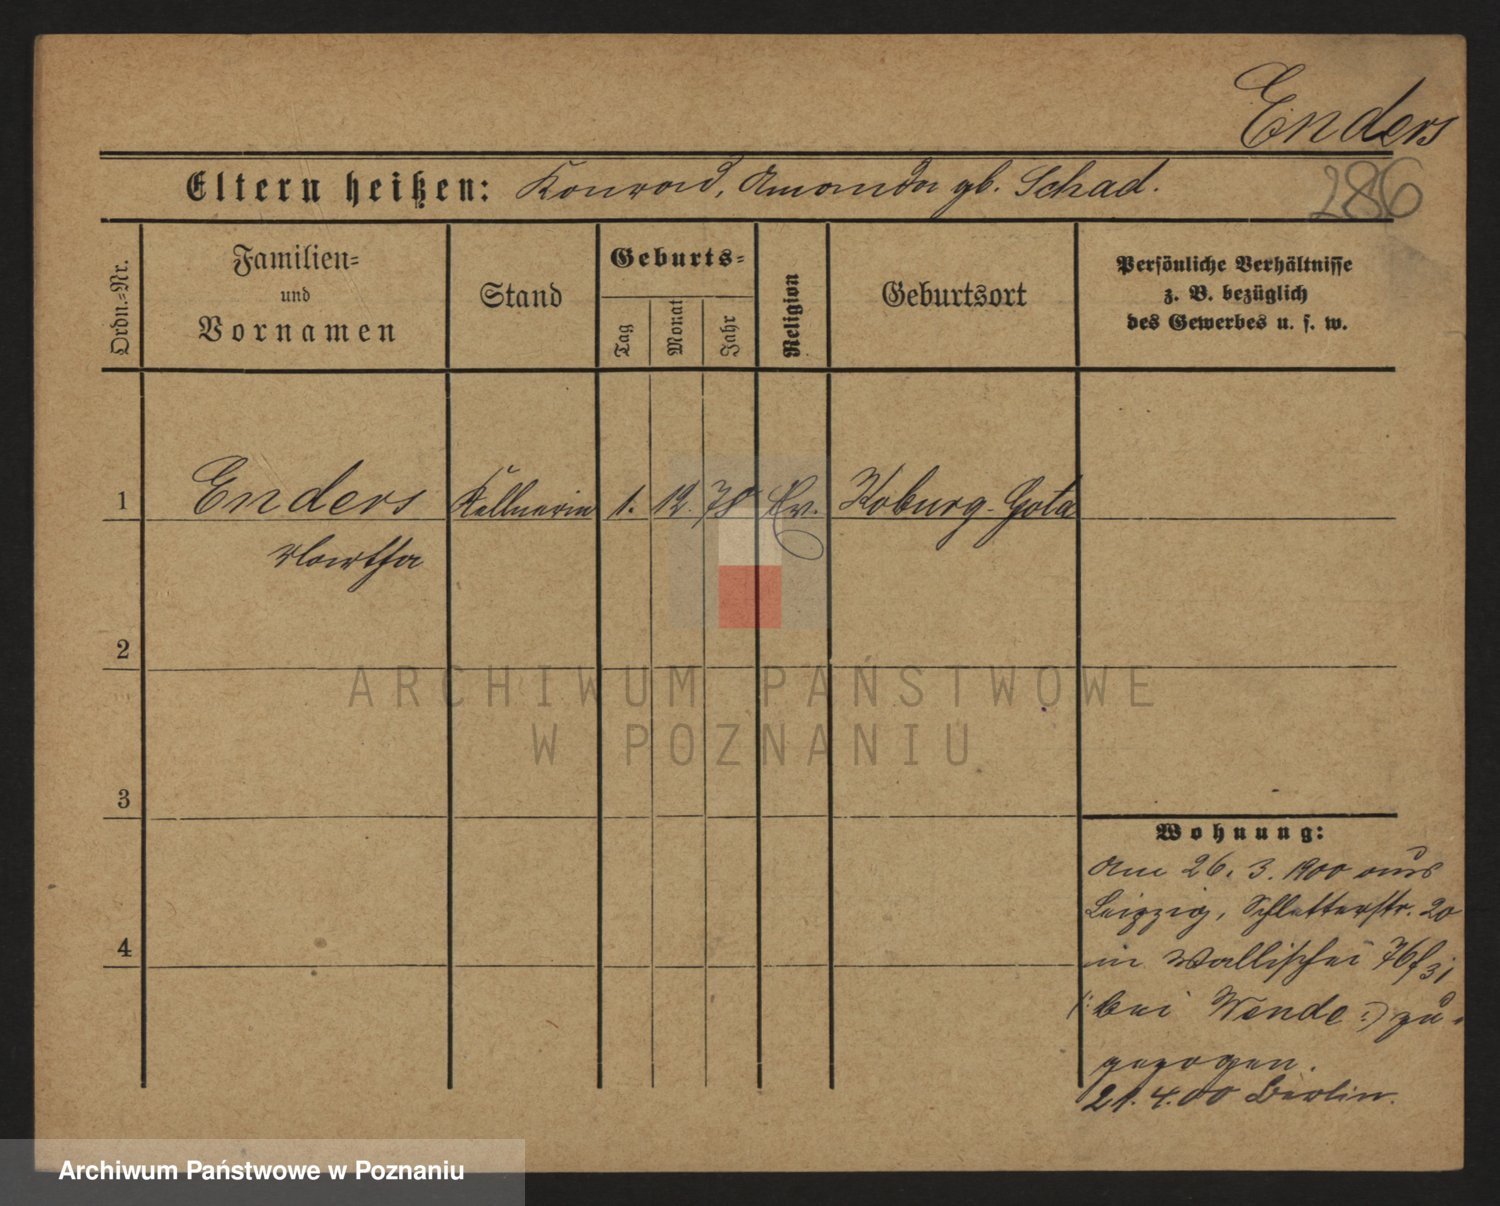 Enders
286
Eltern heißen: Konrad, Amanda gb. Schad.
Ordn.=Nr.
Familien= und Vornamen
Stand
Geburts=
Tag
Monat
Jahr
Religion
Geburtsort
Persönliche Verhältnisse
z. B. bezüglich
des Gewerbes u. s. w.
1 Enders Kellnerin 1. 12. 78 Ev. Koburg-Gota
Martha
2
3
4
ARCHIWUM PAŃSTWOWE
W POZNANIU
Wohnung:
Am 26. 3. 1900 aus
Leipzig, Schletterstr. 20
in Wallischei 76
(: bei Wende :) zu-
gezogen.
21. 4. 00 Berlin.
Archiwum Państwowe w Poznaniu